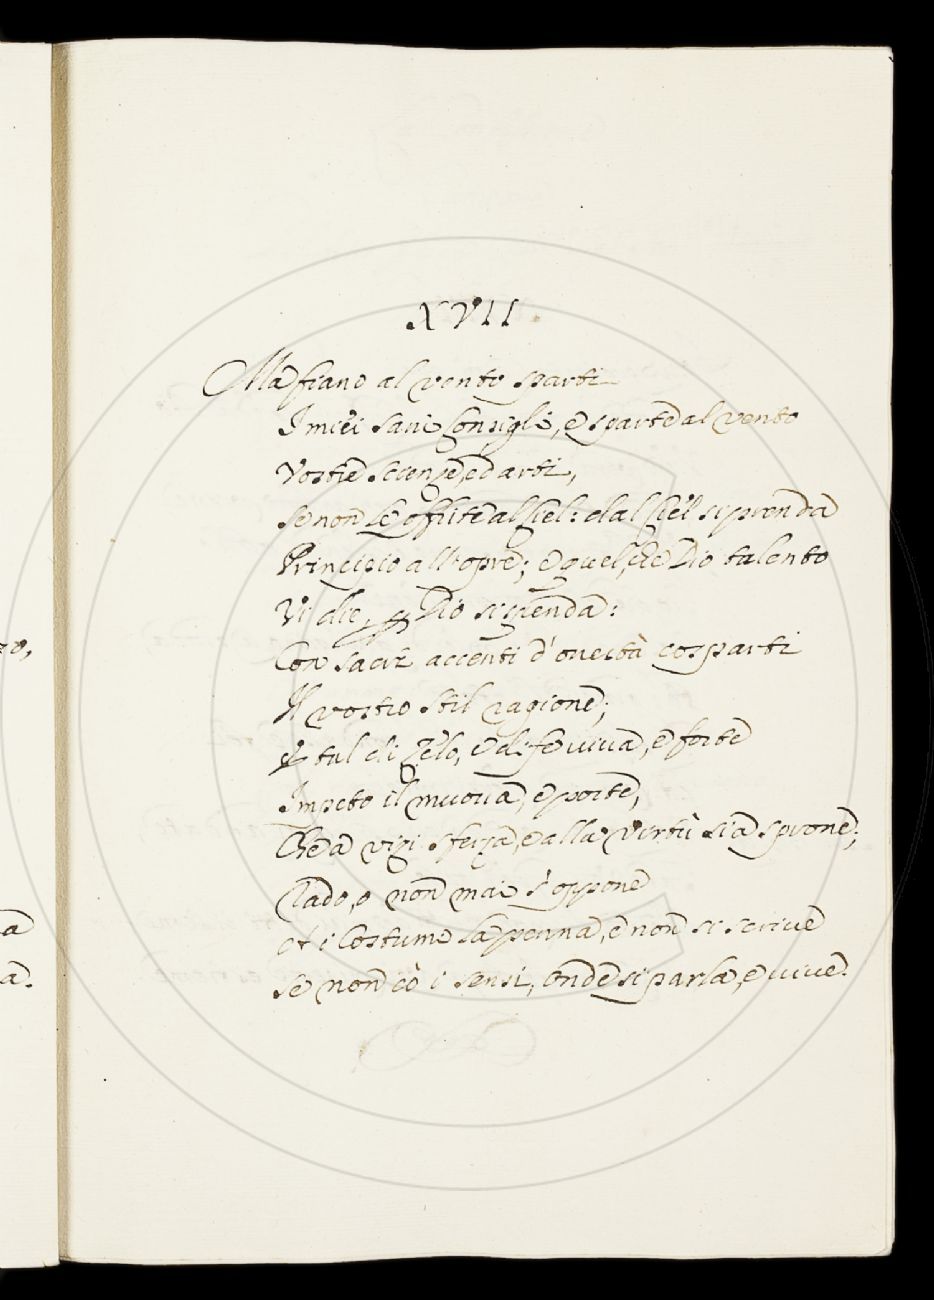 zo,
a
a.
XVII.
Ma fiano al vento sparti
I miei savi Consigli, e sparte al vento
Vostre Scienze, ed arti,
Se non le offrite al Ciel: dal Ciel si prenda
Principio all'opre; e quel, che Dio talento
Vi die, per Dio si spenda:
Con sacri accenti d'onestà cosparti
Il vostro stil ragione;
E tal di Zelo, e di fe viva, e forte
Impeto il muova, e porte,
Che a vizi sferza, e alla Virtù sia sprone;
Rado, o non mai s'oppone
Al Costume la penna, e non si scrive
Se non cò i sensi, onde si parla, e vive.